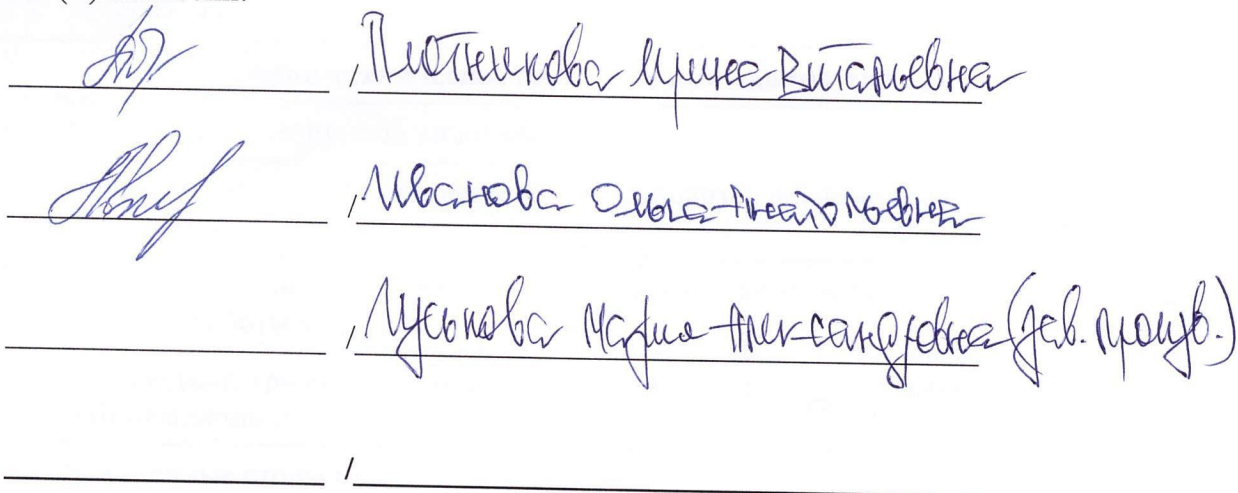 / Плотникова Ирина Витальевна
/ Иванова Ольга Анатольевна
/ Луськова Мария Александровна (зав. произв.)
/